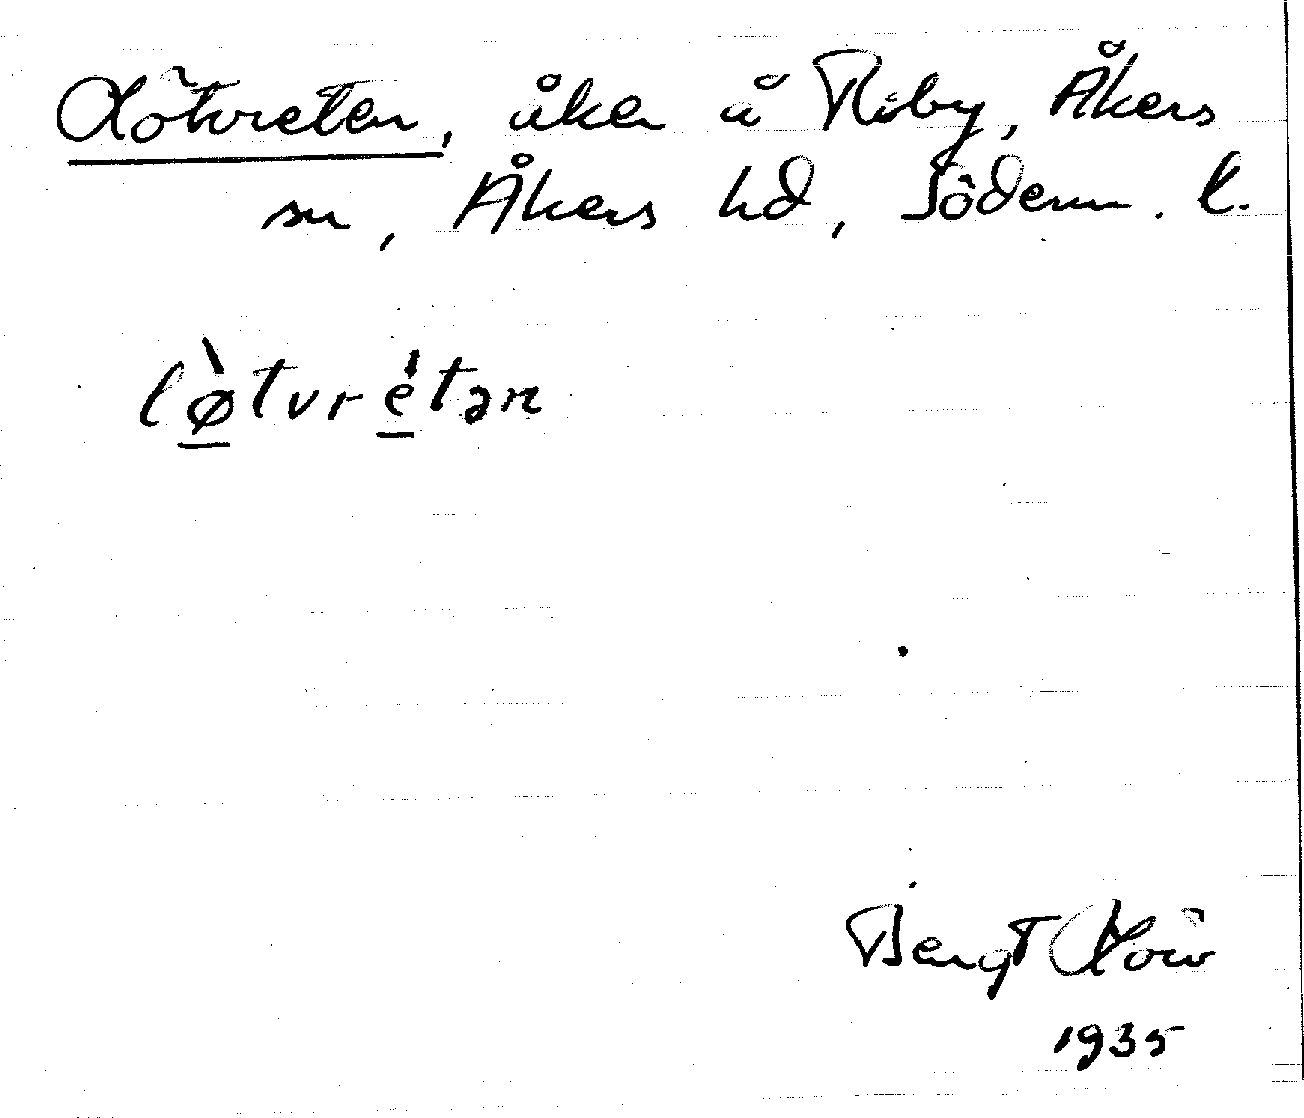 Lötvreten, åker å Råby, Åkers
sn, Åkers hd, Söderm. l.
lø̀tvrétən
Bengt
1935